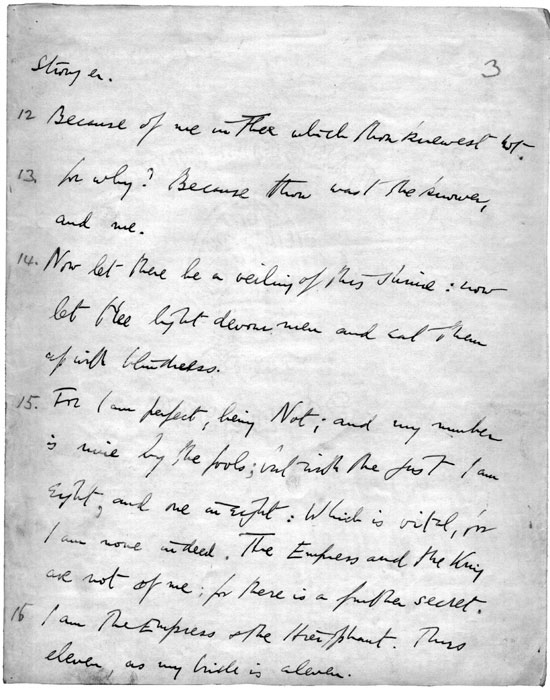 3
stronger.
12 Because of me in Thee which thou knewest not.
13. for why? Because thou wast the knower,
and me.
14. Now let there be a veiling of this shrine: now
let the light devour men and eat them
up with blindness.
15. For I am perfect, being Not; and my number
is nine by the fools; but with the just I am
eight, and one in eight: Which is vital, for
I am none indeed. The Empress and the King
are not of me; for there is a further secret.
16 I am The Empress & the Hierophant. Thus
eleven, as my bride is eleven.